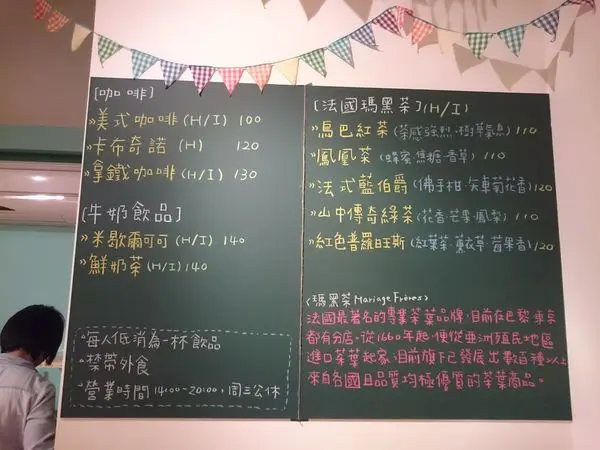 [咖啡]
»美式咖啡(H/I) 100
»卡布奇諾(H) 120
»拿鐵咖啡(H/I) 130
[牛奶飲品]
»米歇爾可可(H/I) 140
»鮮奶茶(H/I) 140
»每人低消為一杯飲品
»禁帶外食
»營業時間14:00-20:00,周三公休
[法國瑪黑茶](H/I)
»鳥巴紅茶(茶感強烈·樹草氣息) 110
»鳳凰茶(蜂蜜·焦糖·香草) 110
»法式藍伯爵(佛手柑·矢車菊花香) 120
»山中傳奇綠茶(花香·芒果·鳳梨) 110
»紅色普羅旺斯(紅葉茶·薰衣草·莓果香) 120
<瑪黑茶Mariage Frères>
法國最著名的專業茶葉品牌,目前在巴黎、東京
都有分店。從1660年起,便從亞洲殖民地區
進口茶葉起家,目前旗下已發展出數百種以上
來自各國且品質均極優質的茶葉商品。